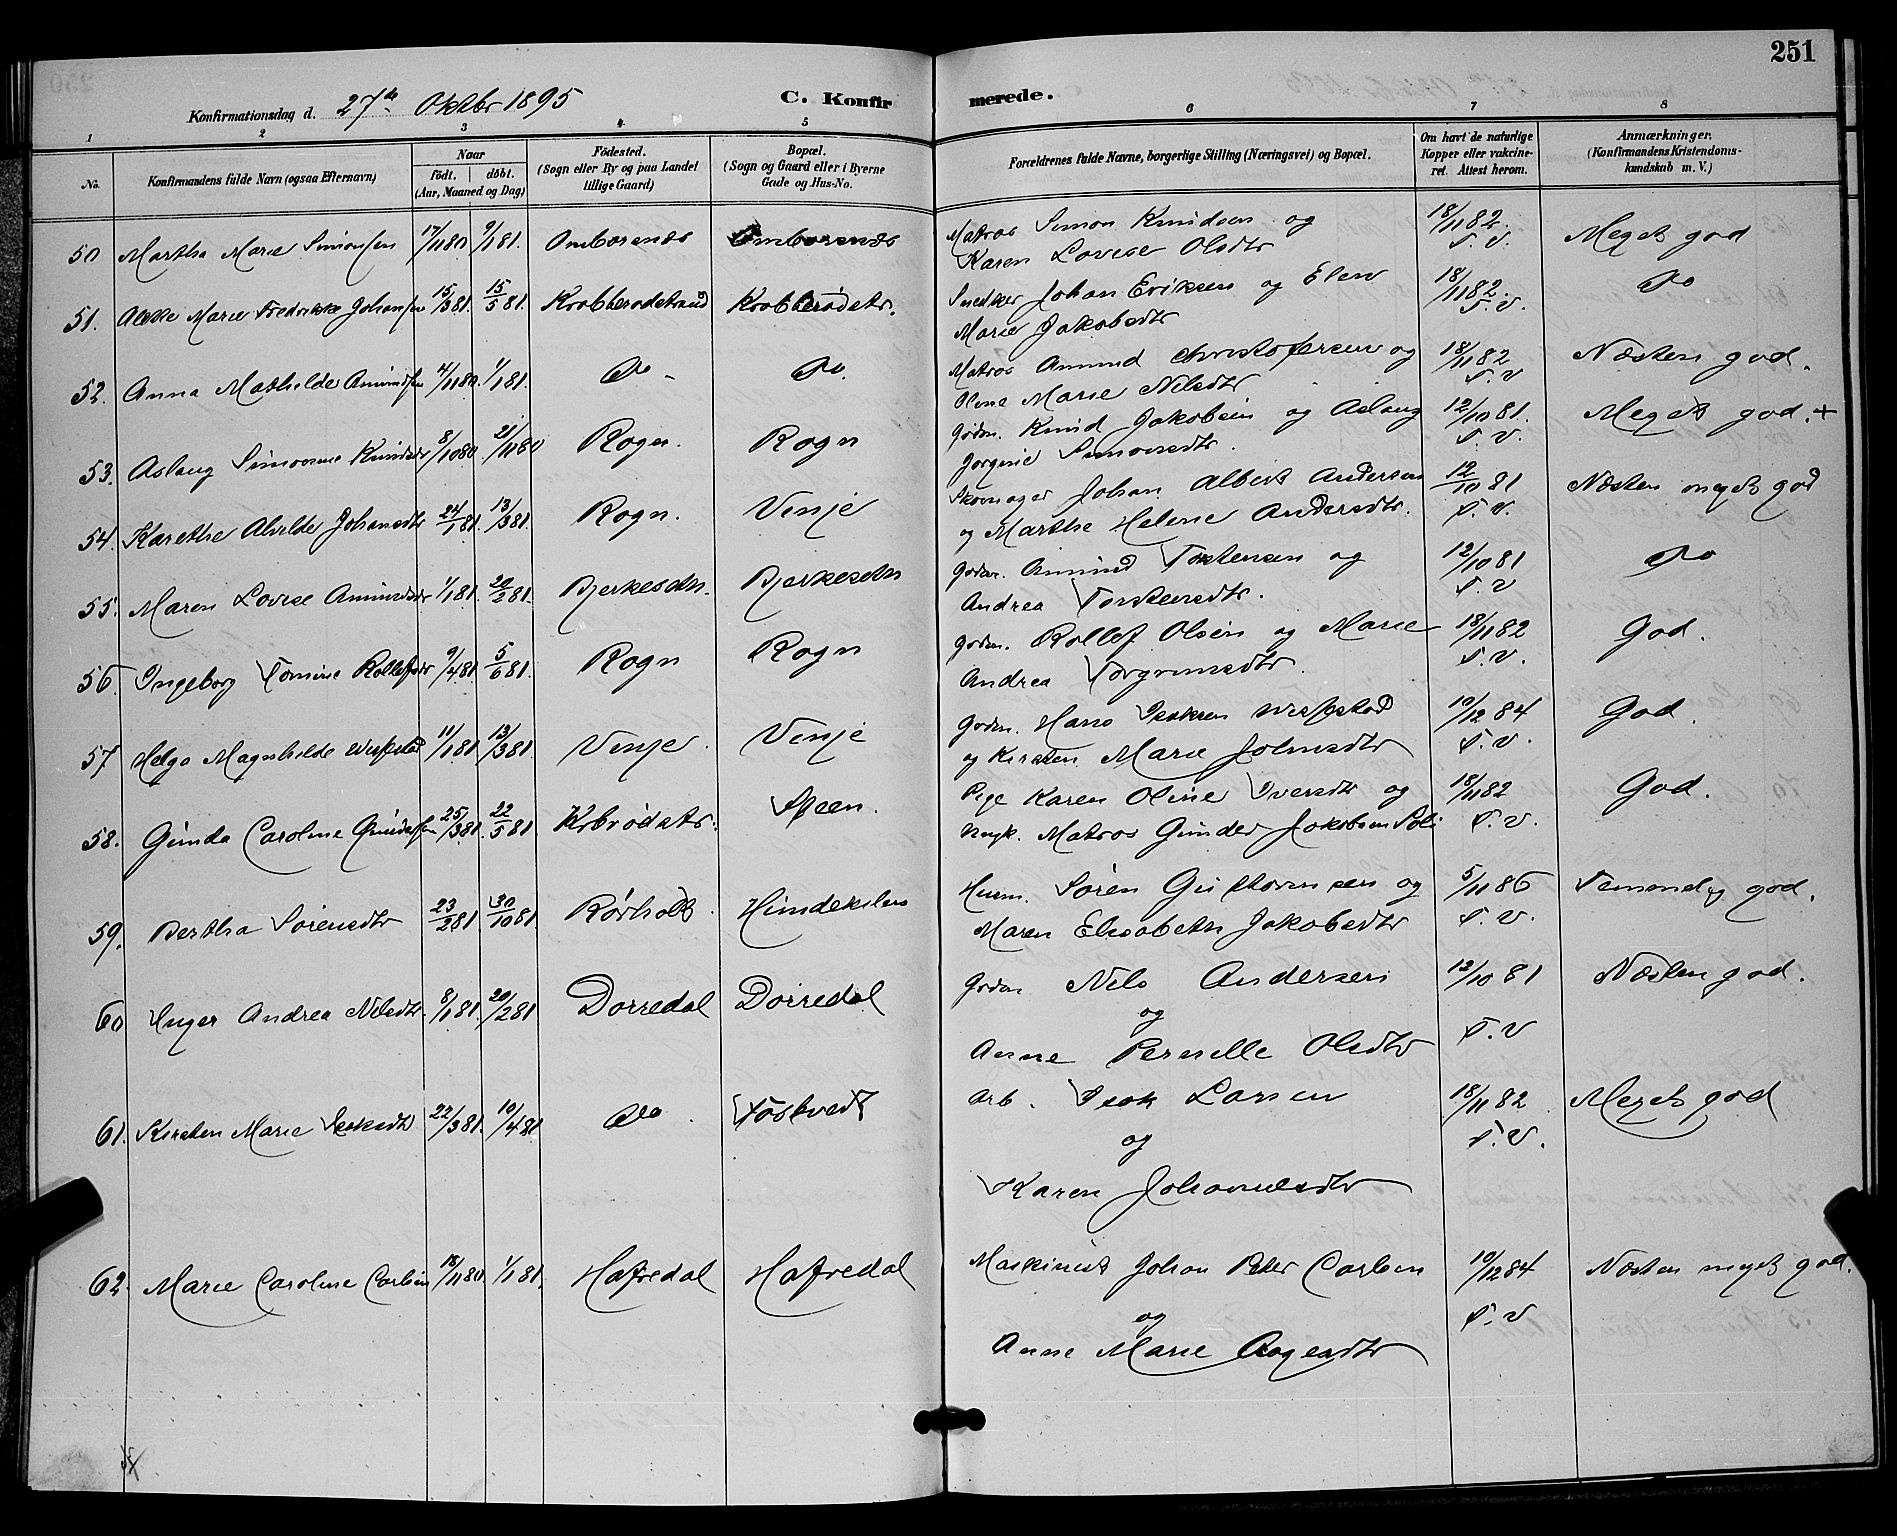 251
Konfirmationsdag d. 27de Oktbr 1895 C. Konfirmerede.
1 2 3 4 5 6 7 8
No. Konfirmandens fulde Navn (ogsaa Efternavn) Naar født. døbt. (Aar, Maaned og Dag) Fødested. (Sogn eller By og paa Landet tillige Gaard) Bopæl. (Sogn og Gaard eller i Byerne Gade og Hus-No. Forældrenes fulde Navne, borgerlige Stilling (Næringsvei) og Bopæl. Om havt de naturlige Kopper eller vakcineret. Attest herom. Anmærkninger. (Konfirmandens Kristendomskundskab m. V.)
50 Martha Marie Simonsen 17/11 80 9/1 81. Omborsnes Omborsnes Matros Simon Knudsen og 18/11 82 Meget god
Karen Lovise Olsdtr S. V.
51. Marie Fredrikke Johansen 15/3 81. 15/5 81. Krobberødstrand Krobberødstr. Snedker Johan Eriksen og Elen 18/11 82. Do
Marie Jakobsdtr S. V.
52. Anna Mathilde Amundsen 4/11 80. 1/1 81. Do - Do. Matros Amund Christofersen og 18/11 82 Næsten god.
Oline Marie Nilsdtr S. V
53. Aslaug Simonine Knudsdtr 8/10 80 21/11 80 Rogn. Rogn Gdm. Knud Jakobsen og Aslaug 12/10 81. Meget god. +
Jorgine Simonsdtr. S. V.
54. Karethe Alvilde Johansdtr 24/1 81. 13/3 81. Rogn. Vinje Skomager Johan Albert Andersen 12/10 81 Næsten meget god
og Marthe Helene Andersdtr. S. V.
55. Maren Lovise Amundsdtr 1/1 81. 20/2 81. Bjerkesdtn. Bjerkesdtn Gdm. Amund Torstensen og 12/10 81 Do
Andrea Torstensdtr. S. V
56. Ingeborg Tomine Rollefsdtr 9/4 81 5/6 81. Rogn Rogn Gdm. Rollef Olsen og Marie 18/11 82 God.
Andrea Torgrimsdtr. S. V.
57 Helga Magnhilde Wefstad 11/1 81 13/3 81. Vinje. Vinje Gdm. Hans Isaksen Wefstad 10/12 84 God.
og Kirsten Marie Johnsdtr S. V.
58. Gunda Caroline Gundersen 25/3 81. 22/5 81 Krbrødstr. Steen. Pige Karen Oline Iversdtr og 18/11 82 God.
Ungk. Matros Gunder Jakobsen S. V.
59. Bertha Sørensdtr 23/2 81 30/10 81. Rørholt. Hindekilen Husm. Søren Gustavensen og 5/11 86 Temmelig god.
Maren Elisabeth Jakobsdtr S. V.
60 Inger Andrea Nilsdtr. 8/1 81. 20/2 81 Dørredal Dørredal Gdm Nils Andersen 12/10 81 Næsten god.
og
Anne Pernille Olsdtr S. V
61. Kirsten Marie Isaksdtr 22/3 81. 10/4 81 Do. Tostvedt Arb. Isak Larsen 18/11 82 Meget god
og S. V.
Karen Johannesdtr
62. Marie Caroline Carlsen 18/11 80. 1/1 81. Hafredal Hafredal Maskinist Johan Peter Carlsen 10/12 84 Næsten meget god.
og S. V
Anne Marie Aagesdtr